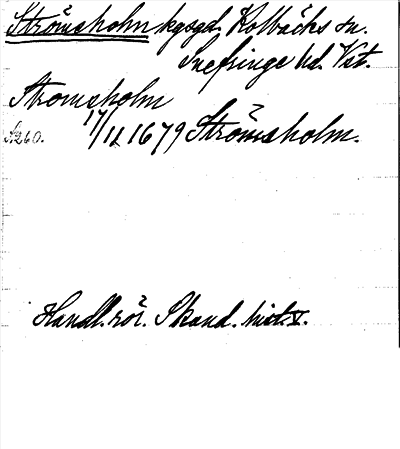 Strömsholm kgsgd. Kolbäcks sn.
Snefringe hd. Vst.
Stromsholm
17/11 1679 Strömsholm.
S. 260.
Handl. rör. Skand. hist. X.